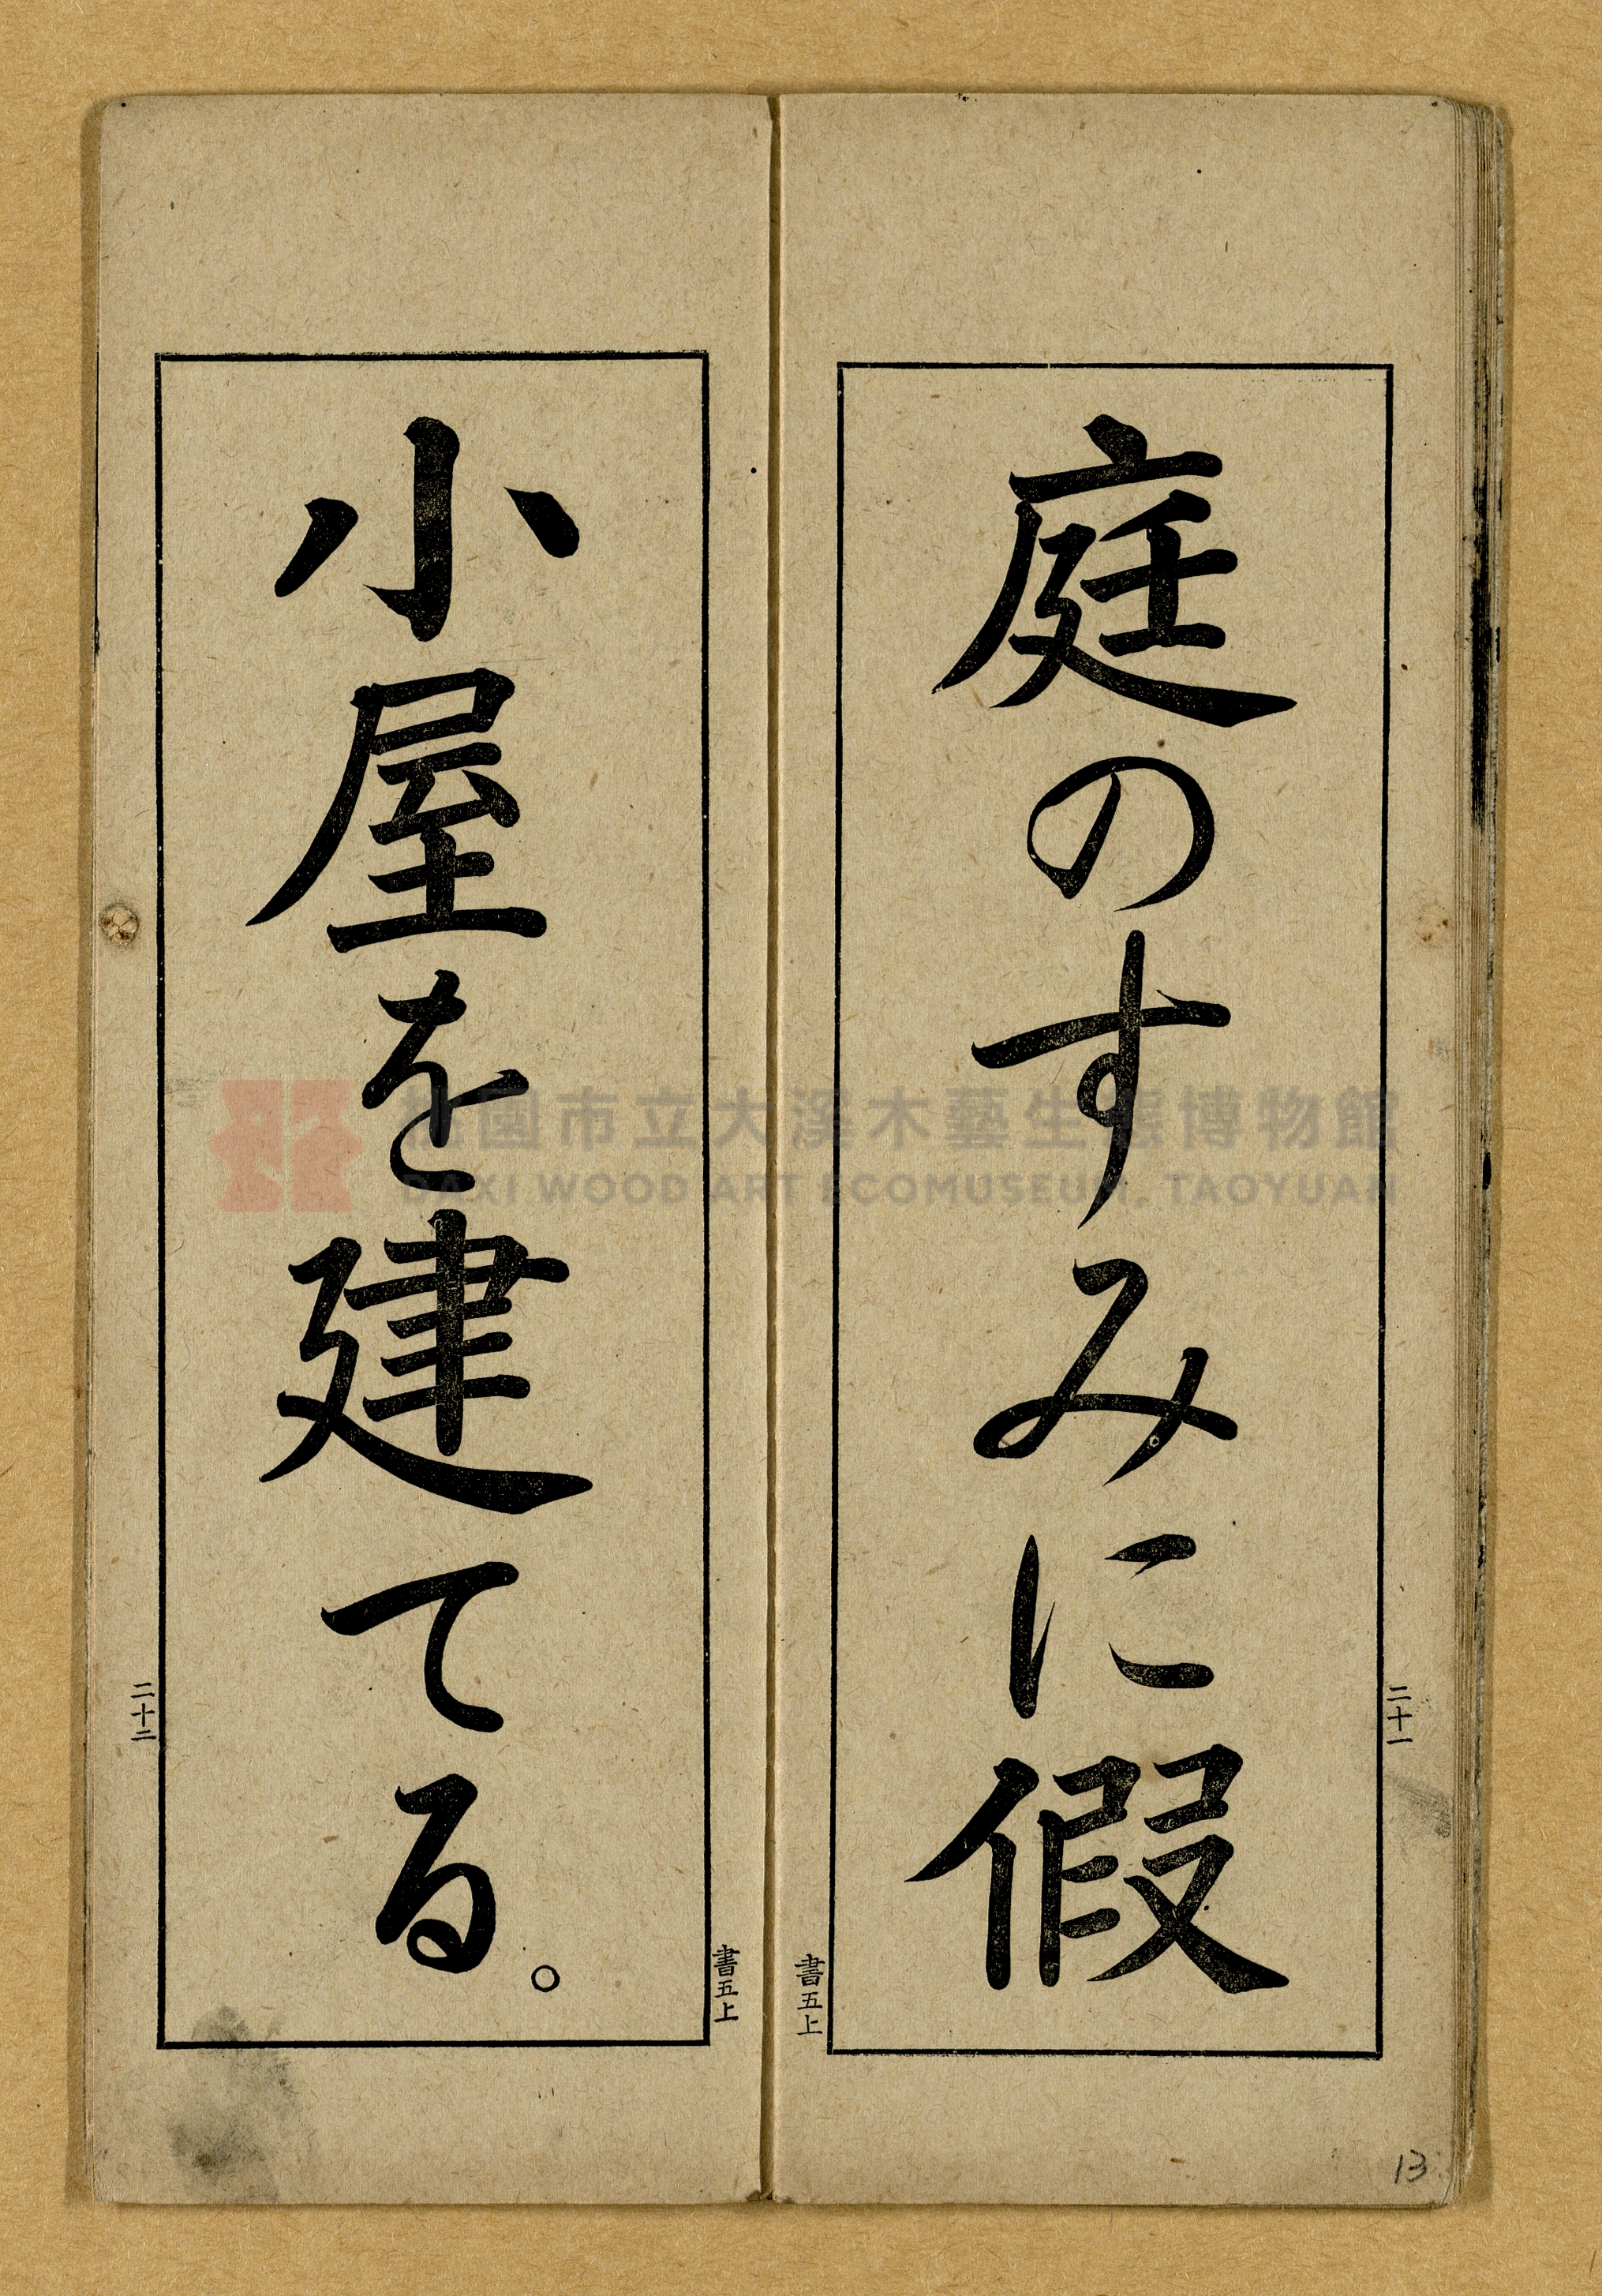 庭のすみに假
二十一
書五上
小屋を建てる。
書五上
二十二
13
桃園市立大溪木藝生態博物館
DAXI WOOD ART ECOMUSEUM, TAOYUAN